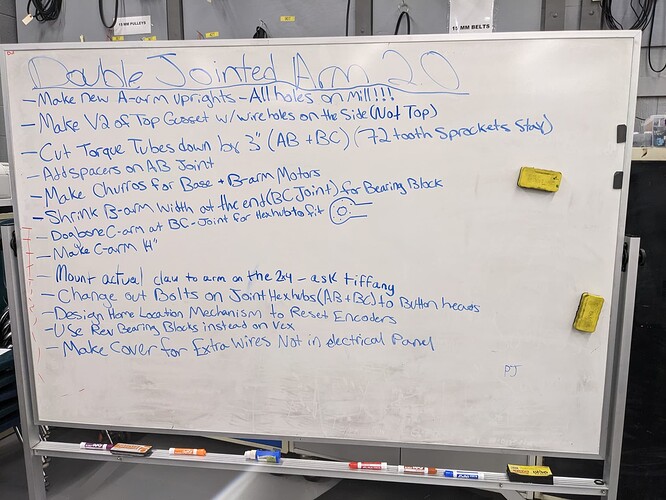 15 MM PULLEYS
15 MM BELTS
Double Jointed Arm 2.0
- Make new A-arm uprights - All holes on Mill!!!
- Make V2 of Top Gusset w/ wire holes on the Side (Not Top)
- Cut Torque Tubes down by 3" (AB + BC) (72 tooth Sprockets Stay)
- Add Spacers on AB Joint
- Make Churros for Base + B-arm Motors
- Shrink B-arm Width at the end (BC Joint) for Bearing Block
- Dogbone C-arm at BC-Joint for Hexhub to fit
- Make C-arm 14"
- Mount actual claw to arm on the 2x4 - ask tiffany
- Change out Bolts on Joint Hexhubs (AB + BC) to Button heads
- Design Home Location Mechanism to Reset Encoders
- Use Rev Bearing Blocks instead on Vex
- Make Cover for Extra Wires Not in electrical Panel
PJ